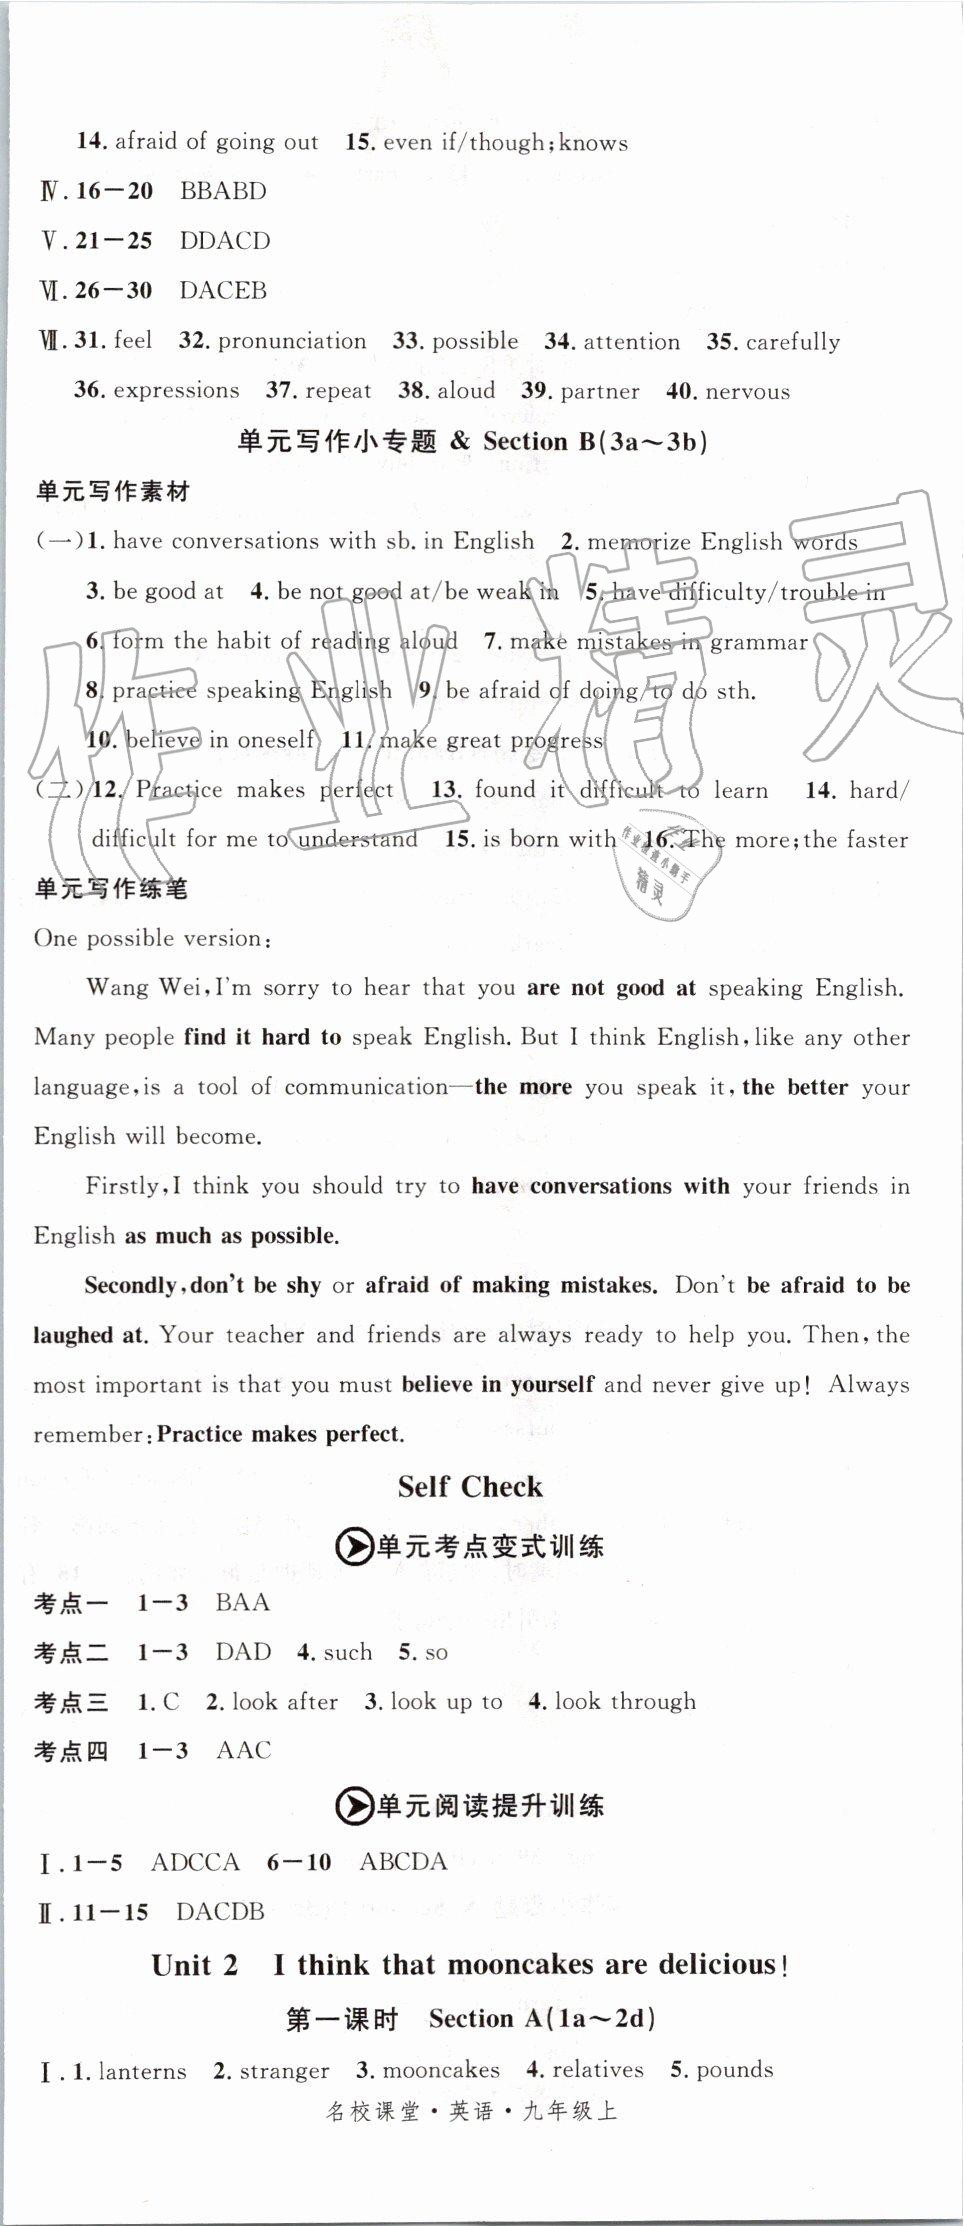 14. afraid of going out 15. even if/though;knows
Ⅳ. 16－20 BBABD
Ⅴ. 21－25 DDACD
Ⅵ. 26－30 DACEB
Ⅶ. 31. feel 32. pronunciation 33. possible 34. attention 35. carefully
36. expressions 37. repeat 38. aloud 39. partner 40. nervous
单元写作小专题 & Section B(3a～3b)
单元写作素材
(一)1. have conversations with sb. in English 2. memorize English words
3. be good at 4. be not good at/be weak in 5. have difficulty/trouble in
6. form the habit of reading aloud 7. make mistakes in grammar
8. practice speaking English 9. be afraid of doing/to do sth.
10. believe in oneself 11. make great progress
(二)12. Practice makes perfect 13. found it difficult to learn 14. hard/
difficult for me to understand 15. is born with 16. The more;the faster
单元写作练笔
One possible version:
Wang Wei,I'm sorry to hear that you are not good at speaking English.
Many people find it hard to speak English. But I think English,like any other
language,is a tool of communication—the more you speak it,the better your
English will become.
Firstly,I think you should try to have conversations with your friends in
English as much as possible.
Secondly,don't be shy or afraid of making mistakes. Don't be afraid to be
laughed at. Your teacher and friends are always ready to help you. Then,the
most important is that you must believe in yourself and never give up! Always
remember:Practice makes perfect.
Self Check
单元考点变式训练
考点一 1－3 BAA
考点二 1－3 DAD 4. such 5. so
考点三 1. C 2. look after 3. look up to 4. look through
考点四 1－3 AAC
单元阅读提升训练
Ⅰ. 1－5 ADCCA 6－10 ABCDA
Ⅱ. 11－15 DACDB
Unit 2 I think that mooncakes are delicious!
第一课时 Section A(1a～2d)
Ⅰ. 1. lanterns 2. stranger 3. mooncakes 4. relatives 5. pounds
名校课堂·英语·九年级上
作业精灵
作业检查小助手
精灵